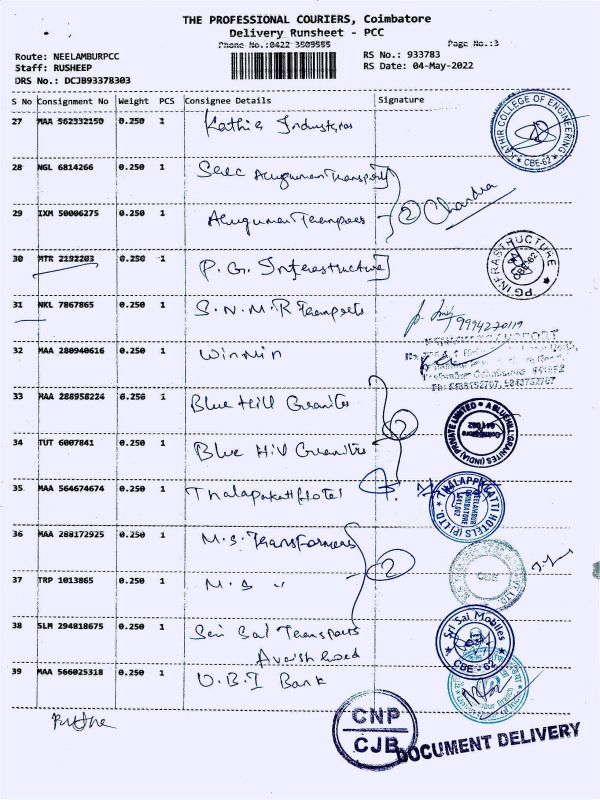 THE PROFESSIONAL COURIERS, Coimbatore
Delivery Runsheet - PCC
Phone No.:0422 3505555
Page No.:3
Route: NEELAMBURPCC
RS No.: 933783
Staff: RUSHEEP
RS Date: 04-May-2022
DRS No.: DCJB93378303
S No Consignment No Weight PCS Consignee Details Signature
27 MAA 562332150 0.250 1 Kathir Industries
KATHIR COLLEGE OF ENGINEERING
CBE-62
28 NGL 6814266 0.250 1 Transport
29 IXM 50006275 0.250 1
2 Chandra
30 MTR 2192203 0.250 1 P.G. Infrastructure
PG INFRASTRUCTURE
CBE-62
31 NKL 7867865 0.250 1 S.N.M.R Transports
9994270119
32 MAA 280940616 0.250 1 Winwin
33 MAA 288958224 0.250 1 Blue Hill Granites
34 TUT 6007841 0.250 1 Blue Hill Granites
2
A BLUEHILL GRANITES (INDIA) PRIVATE LIMITED
Coimbatore
641 062
35 MAA 564674674 0.250 1 Thalapakatti Hotel
THALAPPAKATTI HOTELS (P) LTD.
NEELAMBUR
COIMBATORE
641 062
36 MAA 288172925 0.250 1 M.S. Transformers
37 TRP 1013865 0.250 1 M.S "
2
38 SLM 294818675 0.250 1 Sri Sai Transports
Sri Sai Mobiles
CBE - 62
39 MAA 566025318 0.250 1 U.B.I Bank
CNP
CJB
DOCUMENT DELIVERY